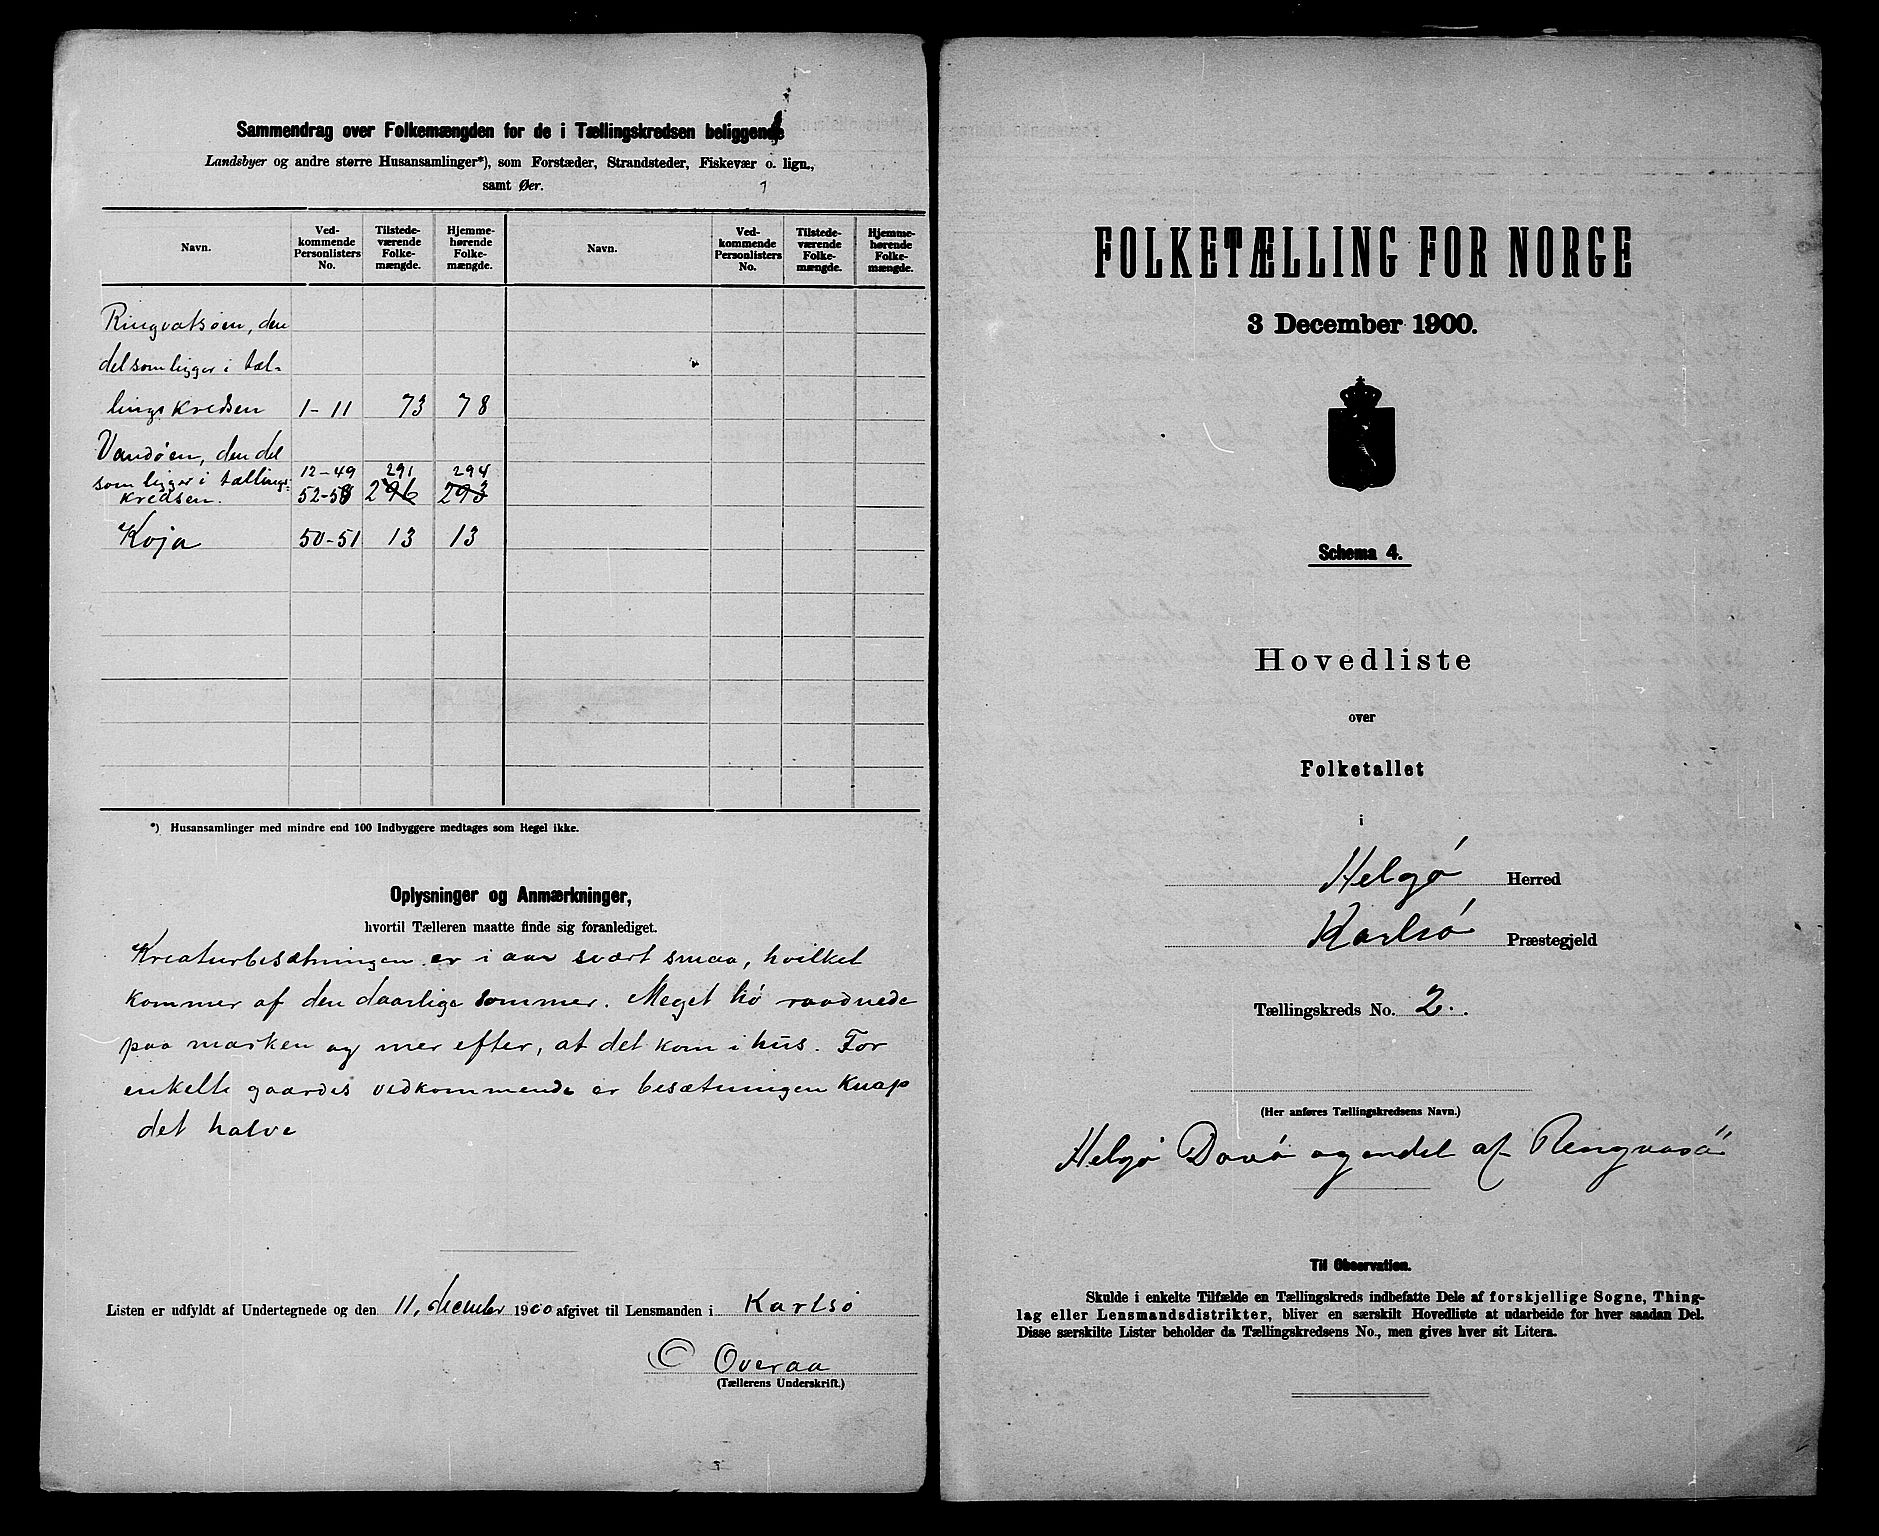 Sammendrag over Folkemængden for de i Tællingskredsen beliggende
Landsbyer og andre større Husansamlinger*), som Forstæder, Strandsteder, Fiskevær o. lign.,
samt Øer.
Navn. Ved-kommende Personlisters No. Tilstede-værende Folke-mængde. Hjemme-hørende Folke-mængde. Navn. Ved-kommende Personlisters No. Tilstede-værende Folke-mængde. Hjemme-hørende Folke-mængde.
Ringvatsøen, den
del som ligger i tæl-
lings kredsen 1-11 73 78
Vandøen, den del
som ligger i tællings- 12-49 291 294
kredsen. 52-58 296 293
Koja 50-51 13 13
*) Husansamlinger med mindre end 100 Indbyggere medtages som Regel ikke.
Oplysninger og Anmærkninger,
hvortil Tælleren maatte finde sig foranlediget.
Kreaturbesætningen er i aar svært smaa, hvilket
kommer af den daarlige sommer. Meget hø raadnede
paa marken og mer efter, at det kom i hus. For
enkelte gaardes vedkommende er besætningen knap
det halve
Listen er udfyldt af Undertegnede og den 11, december 1900 afgivet til Lensmanden i Karlsø
C Overaa
(Tællerens Underskrift.)
FOLKETÆLLING FOR NORGE
3 December 1900.
Schema 4.
Hovedliste
over
Folketallet
i
Helgø Herred
Karlsø Præstegjeld
Tællingskreds No. 2.
(Her anføres Tællingskredsens Navn.)
Helgø Davø og endel af Rengvasö
Til Observation.
Skulde i enkelte Tilfælde en Tællingskreds indbefatte Dele af forskjellige Sogne, Thing-
lag eller Lensmandsdistrikter, bliver en særskilt Hovedliste at udarbeide for hver saadan Del.
Disse særskilte Lister beholder da Tællingskredsens No., men gives hver sit Litera.